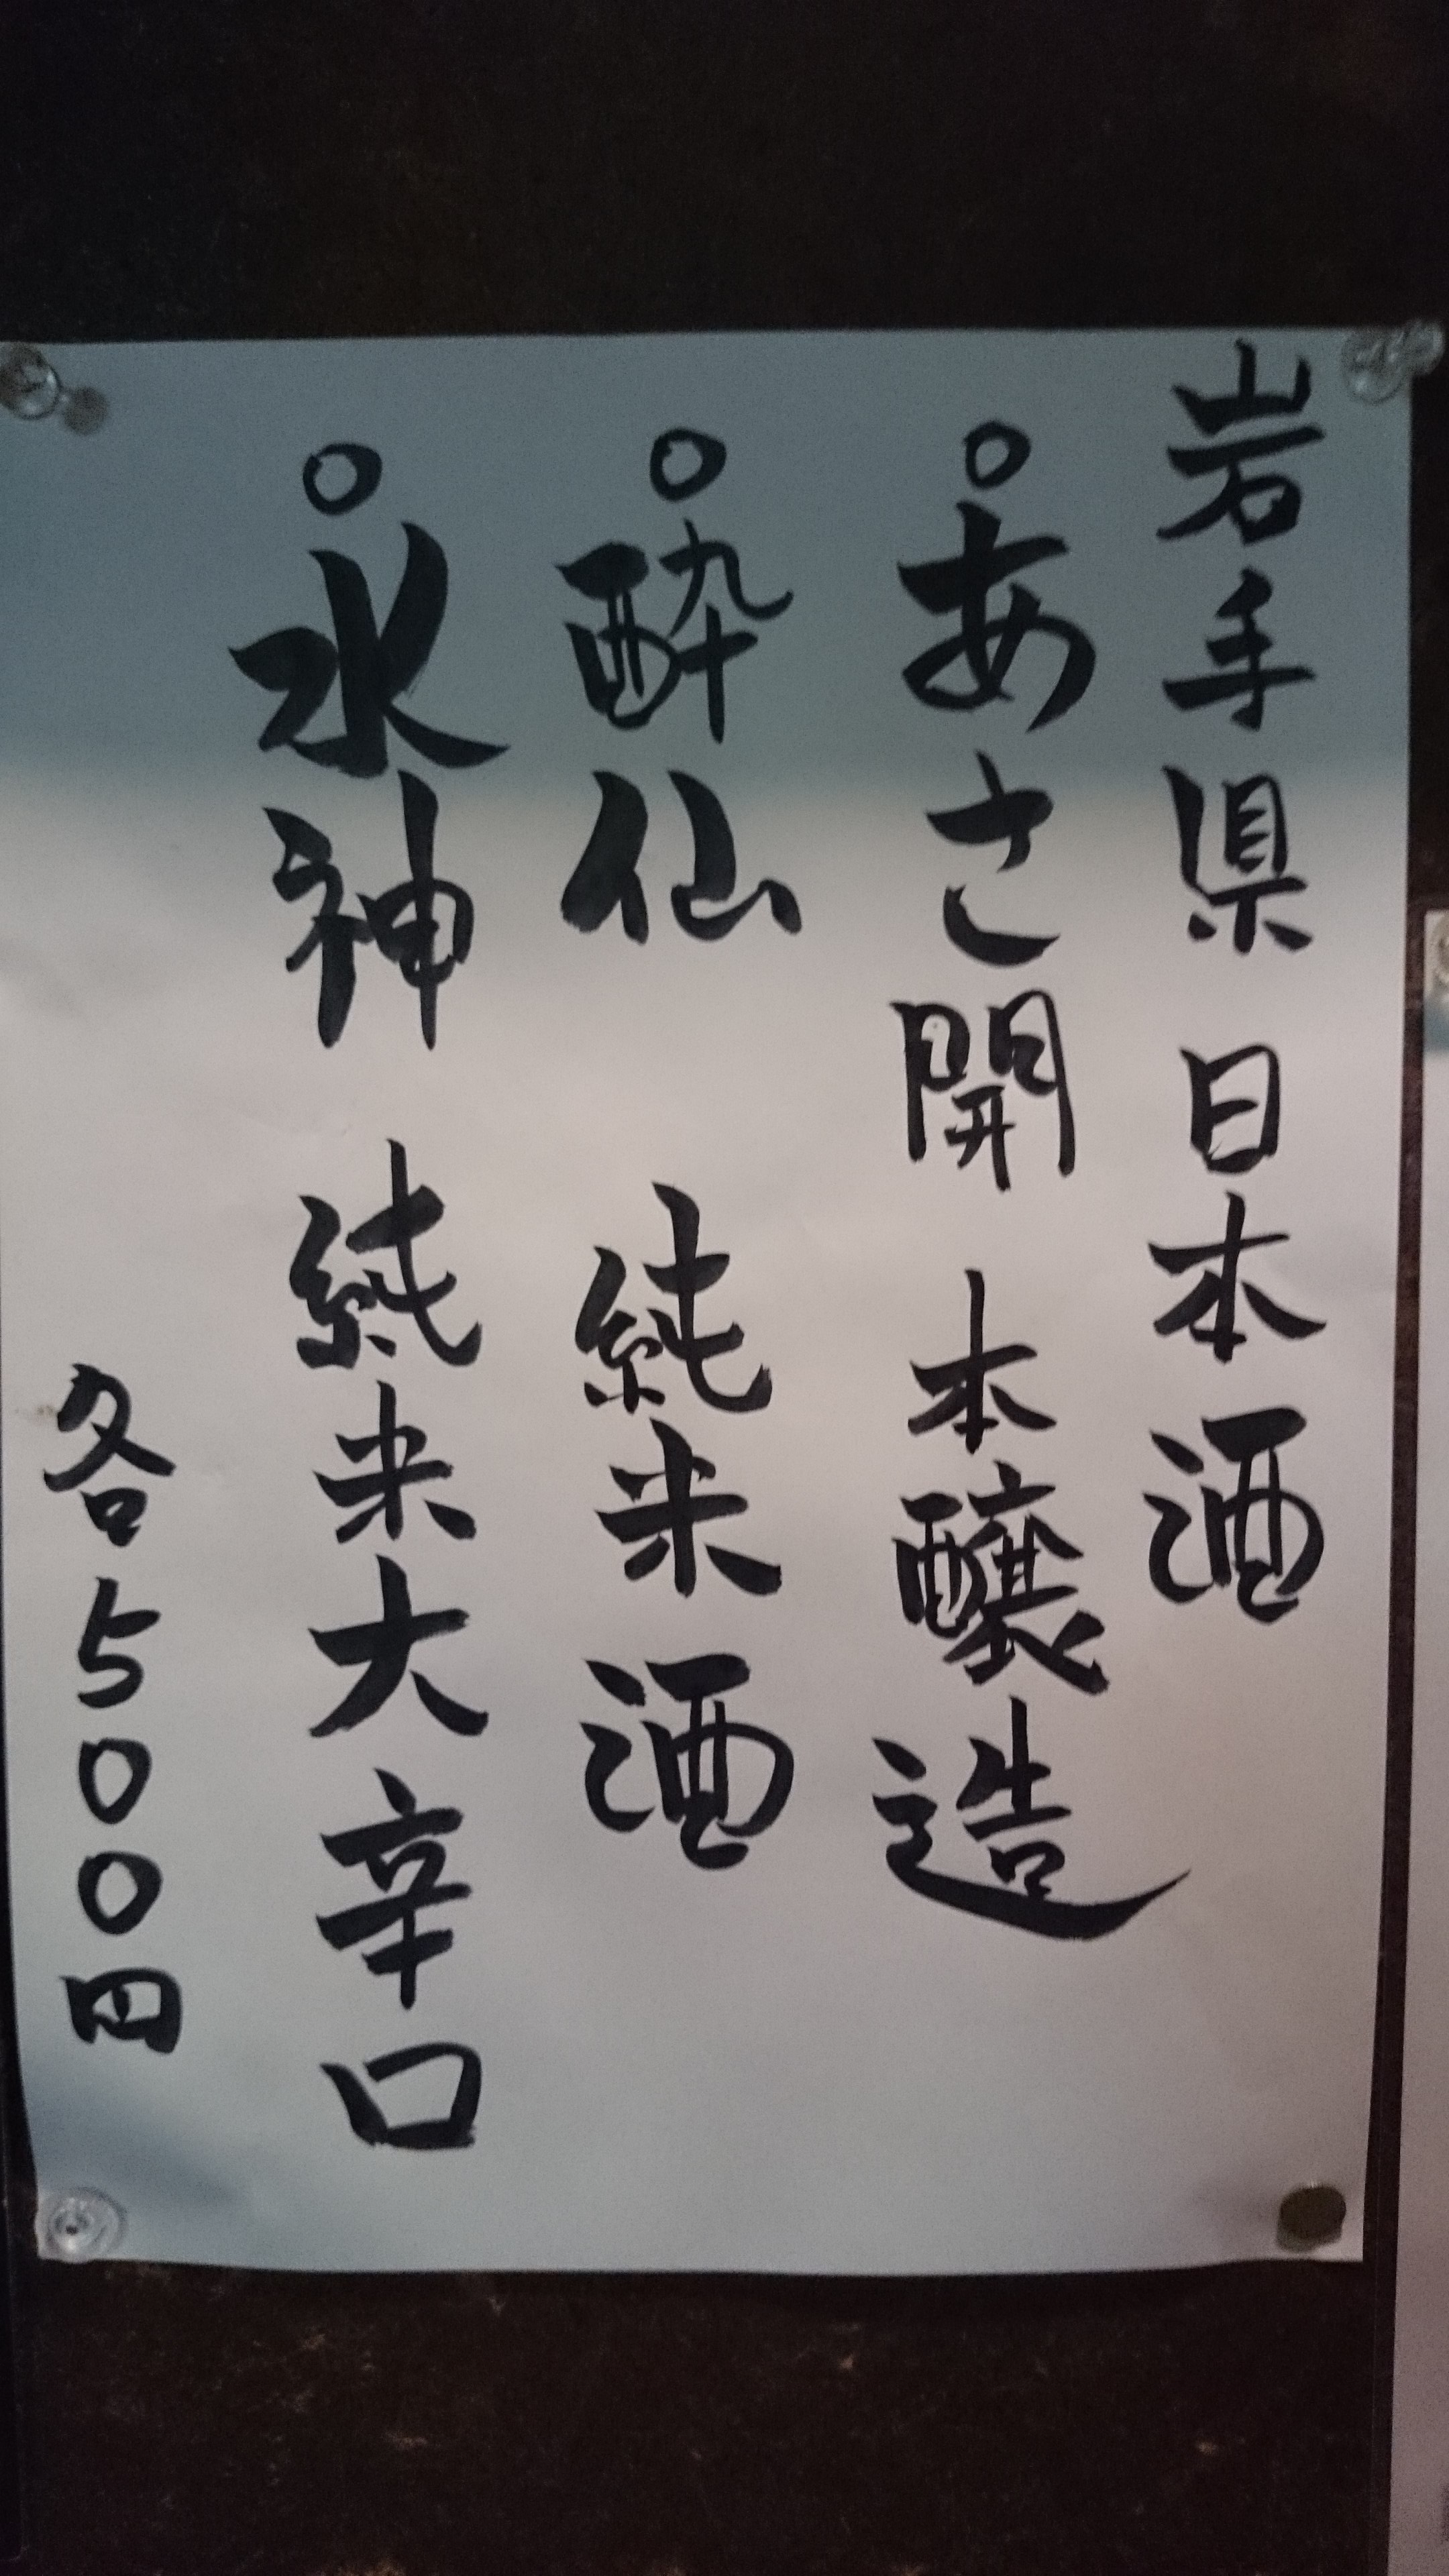 岩手県 日本酒
○あさ開 本醸造
○酔仙 純米酒
○水神 純米大辛口
各500円